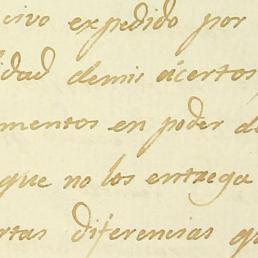 civo expedido por
idad demis ácertos
mentos en poder de
que no los entrega
rtas diferencias q